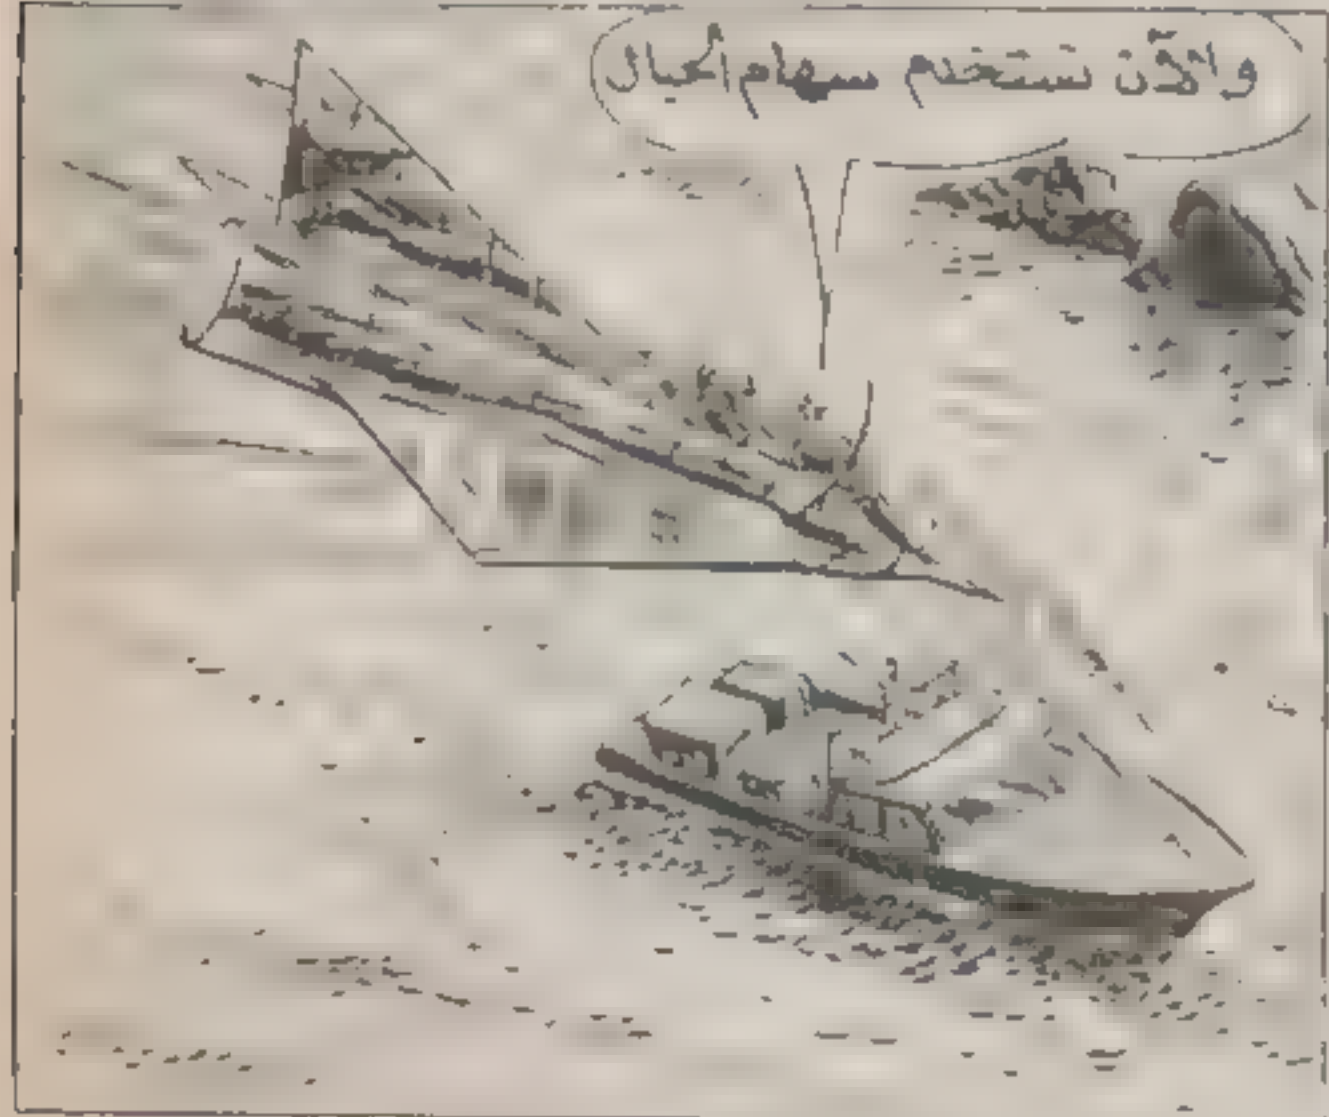 والآن نستخدم سهام الحبال